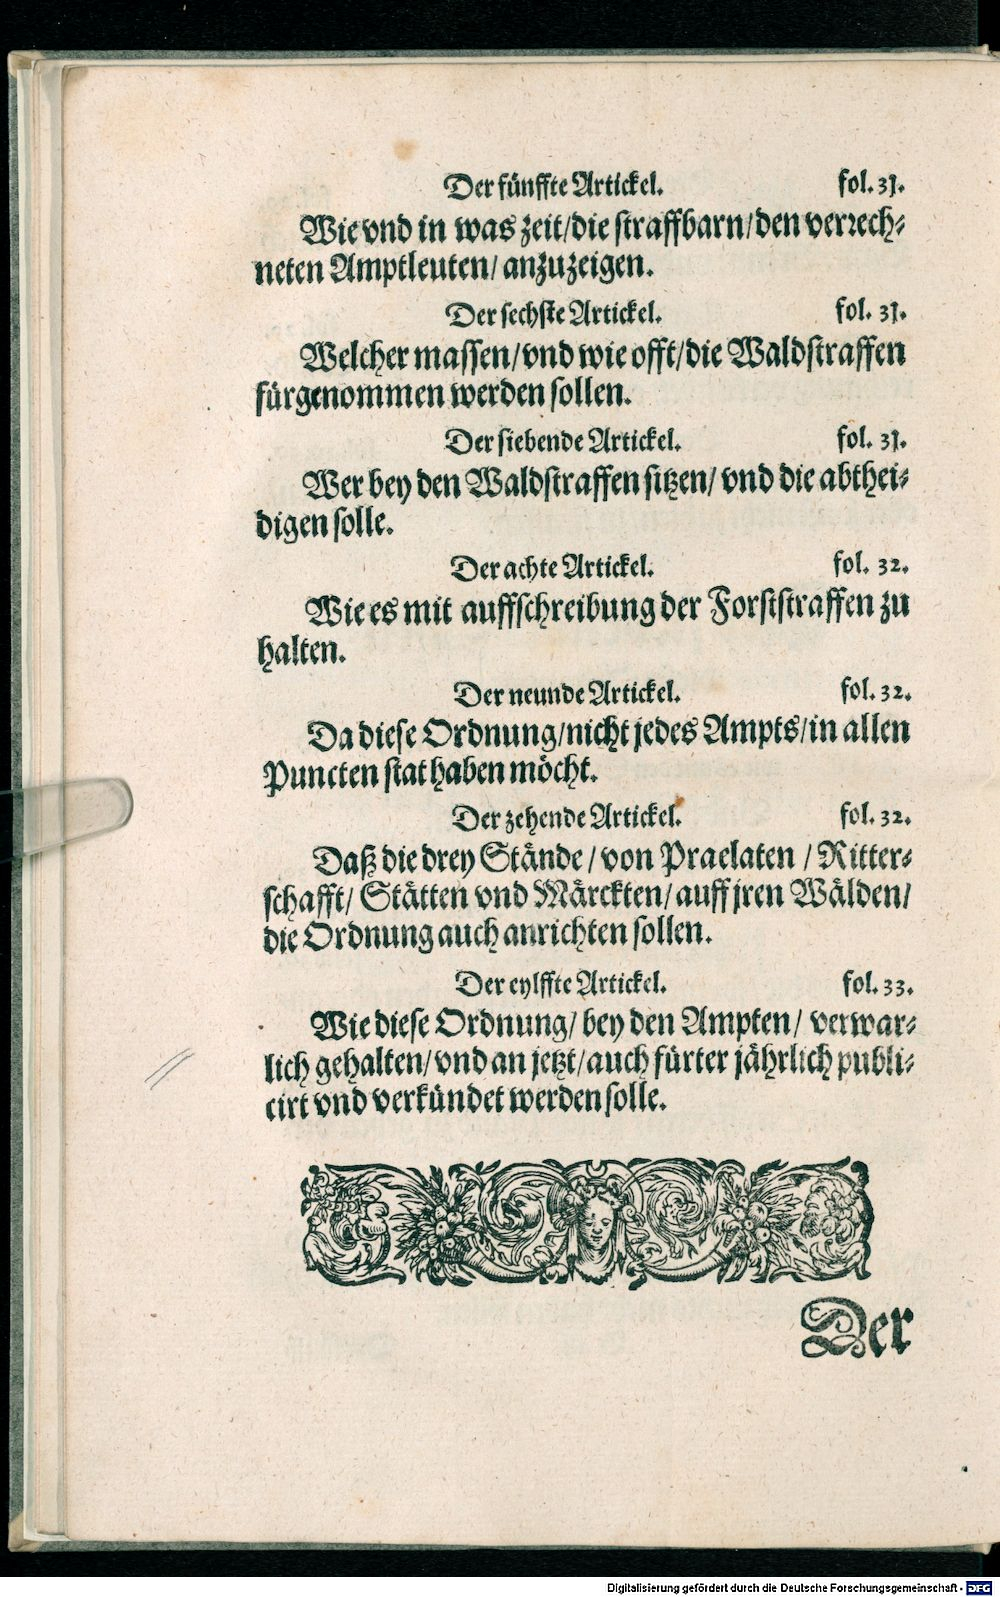 Der fünffte Artickel. fol. 31.
Wie vnd in was zeit/die straffbarn/den verrech-
neten Amptleuten/ anzuzeigen.
Der sechste Artickel. fol. 31.
Welcher massen/vnd wie offt/die Waldstraffen
fürgenommen werden sollen.
Der siebende Artickel. fol. 31.
Wer bey den Waldstraffen sitzen/ vnd die abthei-
digen solle.
Der achte Artickel. fol. 32.
Wie es mit auffschreibung der Forststraffen zu
halten.
Der neunde Artickel. fol. 32.
Da diese Ordnung/nicht jedes Ampts/in allen
Puncten stat haben möcht.
Der zehende Artickel. fol. 32.
Daß die drey Stände/von Praelaten/Ritter-
schafft/ Stätten vnd Märckten/auff jren Wälden/
die Ordnung auch anrichten sollen.
Der eylffte Artickel. fol. 33.
Wie diese Ordnung/ bey den Ampten/ verwar-
lich gehalten/vnd an jetzt/auch fürter jährlich publi-
cirt vnd verkündet werden solle.
Der
Digitalisierung gefördert durch die Deutsche Forschungsgemeinschaft - DFG